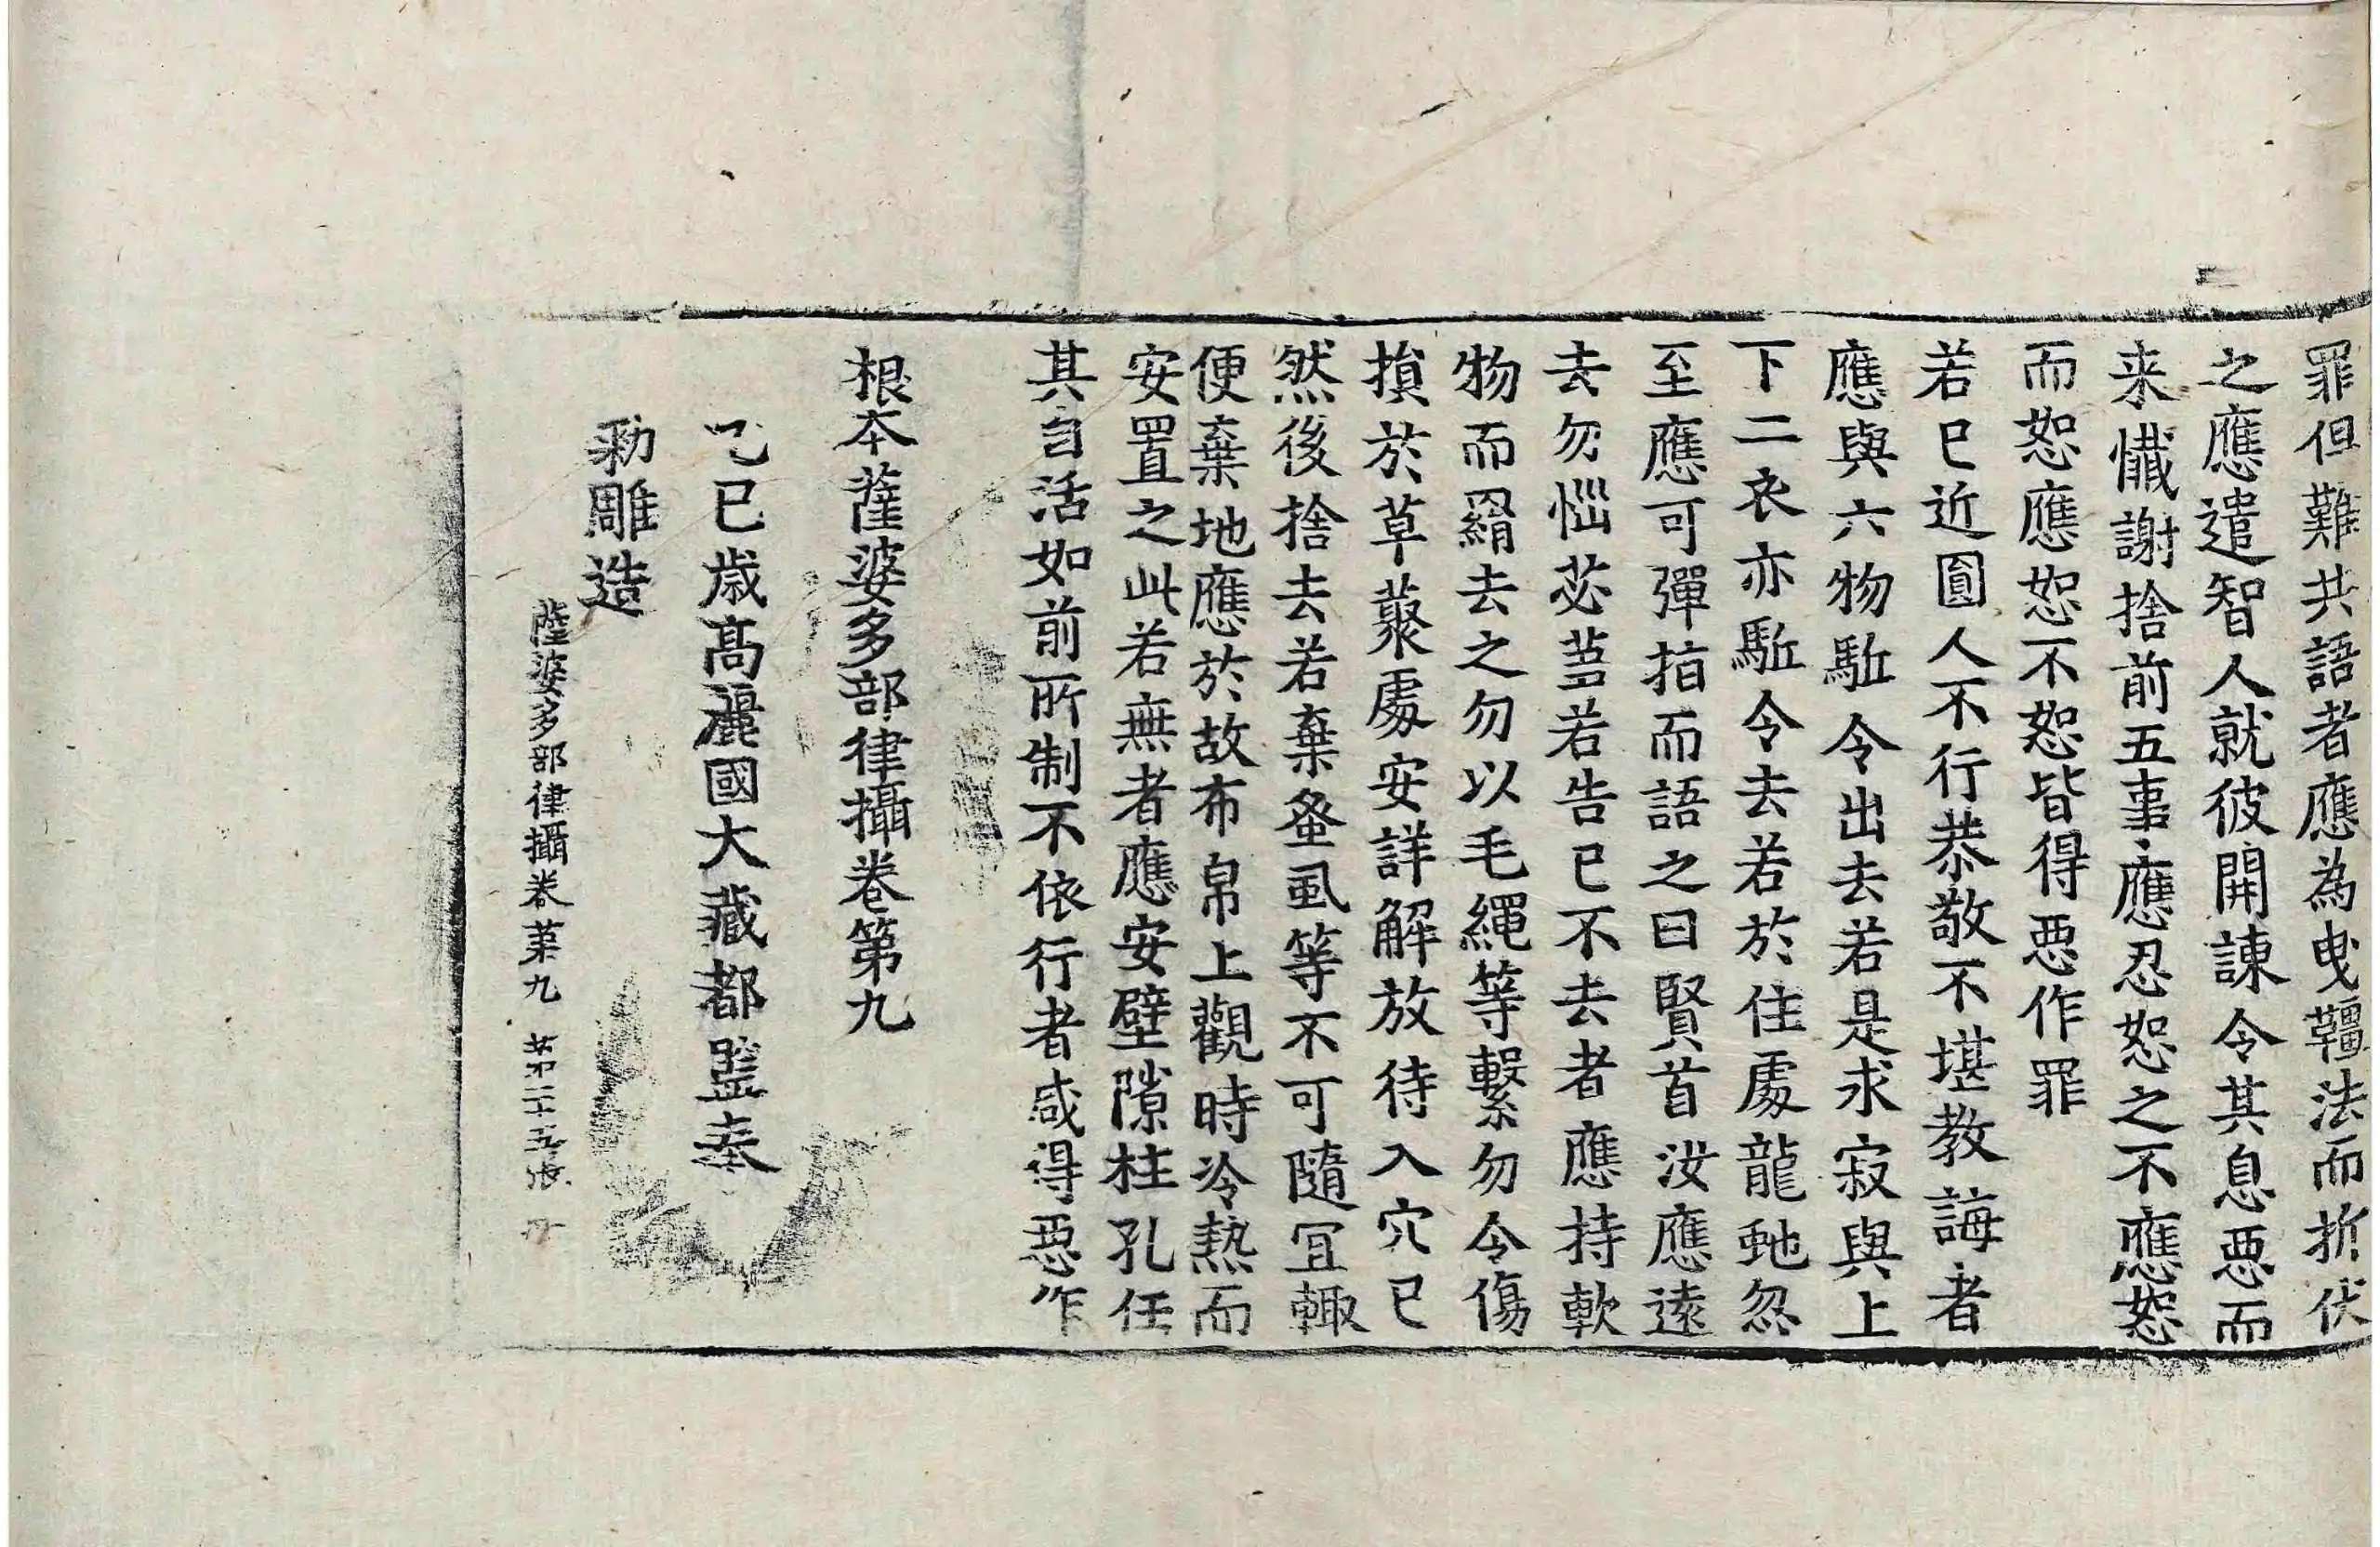 罪但難共語者應為曳韁法而折伏
之應遣智人就彼開諫令其息惡而
来懺謝捨前五事應忍恕之不應恕
而恕應恕不恕皆得惡作罪
若已近圓人不行恭敬不堪教誨者
應與六物駈令出去若是求寂與上
下二衣亦駈令去若於住處龍虵忽
至應可彈指而語之曰賢首汝應遠
去勿惱苾蒭若告已不去者應持軟
物而羂去之勿以毛繩等繫勿令傷
損於草藂處安詳解放待入穴已
然後捨去若棄蚤虱等不可隨冝輙
便棄地應於故布帛上觀時冷熱而
安置之此若無者應安壁隙柱孔任
其自活如前所制不依行者咸得惡作
根本薩婆多部律攝卷第九
乙巳歲高麗國大藏都監奉
勑雕造
薩婆多部律攝卷第九 第二十五張